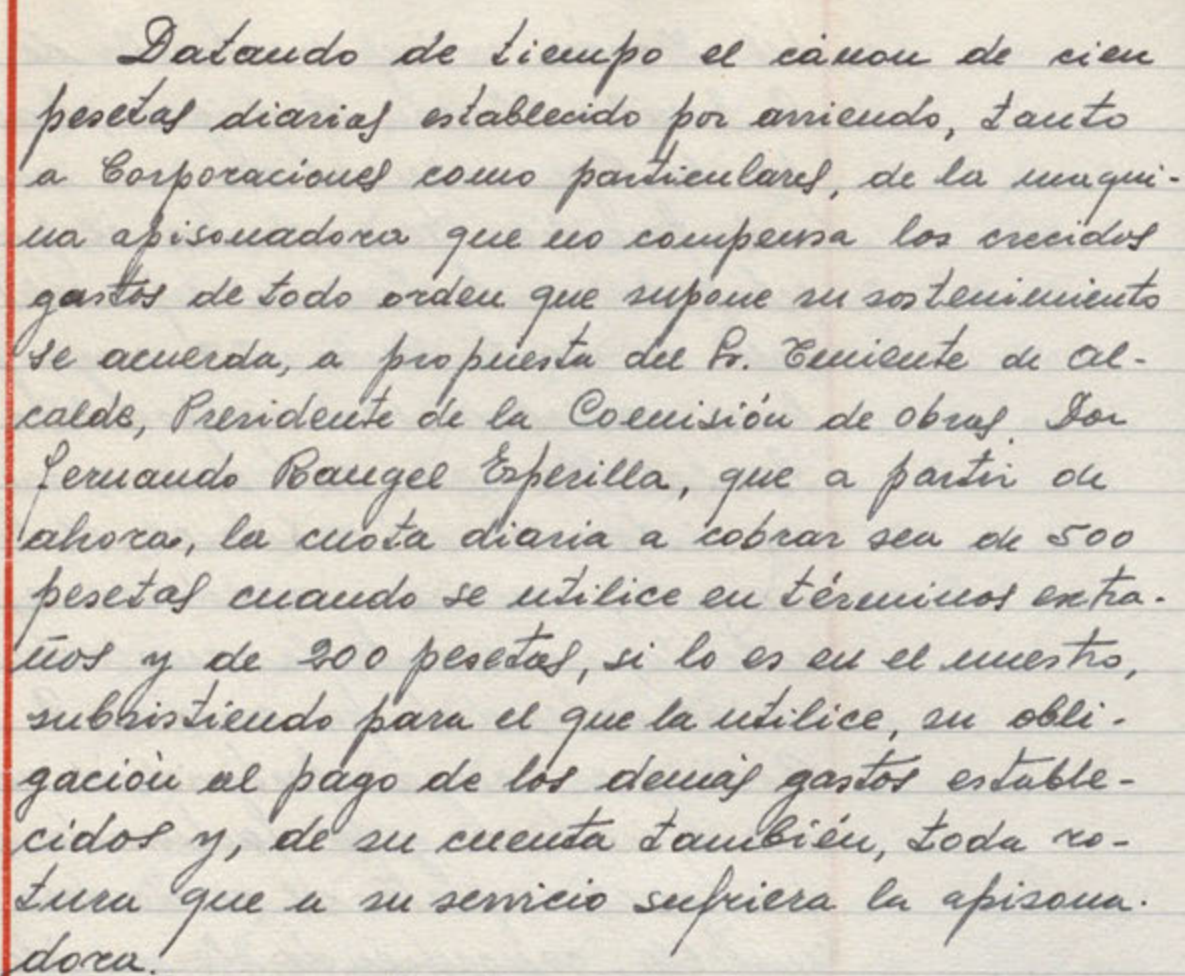 Datando de tiempo el cánon de cien
pesetas diarias establecido por arriendo, tanto
a Corporaciones como particulares, de la maqui-
na apisonadora que no compensa los crecidos
gastos de todo orden que supone su sostenimiento
se acuerda, a propuesta del Sr. Teniente de Al-
calde, Presidente de la Comisión de obras Don
Fernando Rangel Esperilla, que a partir de
ahora, la cuota diaria a cobrar sea de 500
pesetas cuando se utilice en términos extra-
ños y de 200 pesetas, si lo es en el nuestro,
subsistiendo para el que la utilice, su obli-
gación al pago de los demás gastos estable-
cidos y, de su cuenta también, toda ro-
tura que a su servicio sufriera la apisona-
dora.